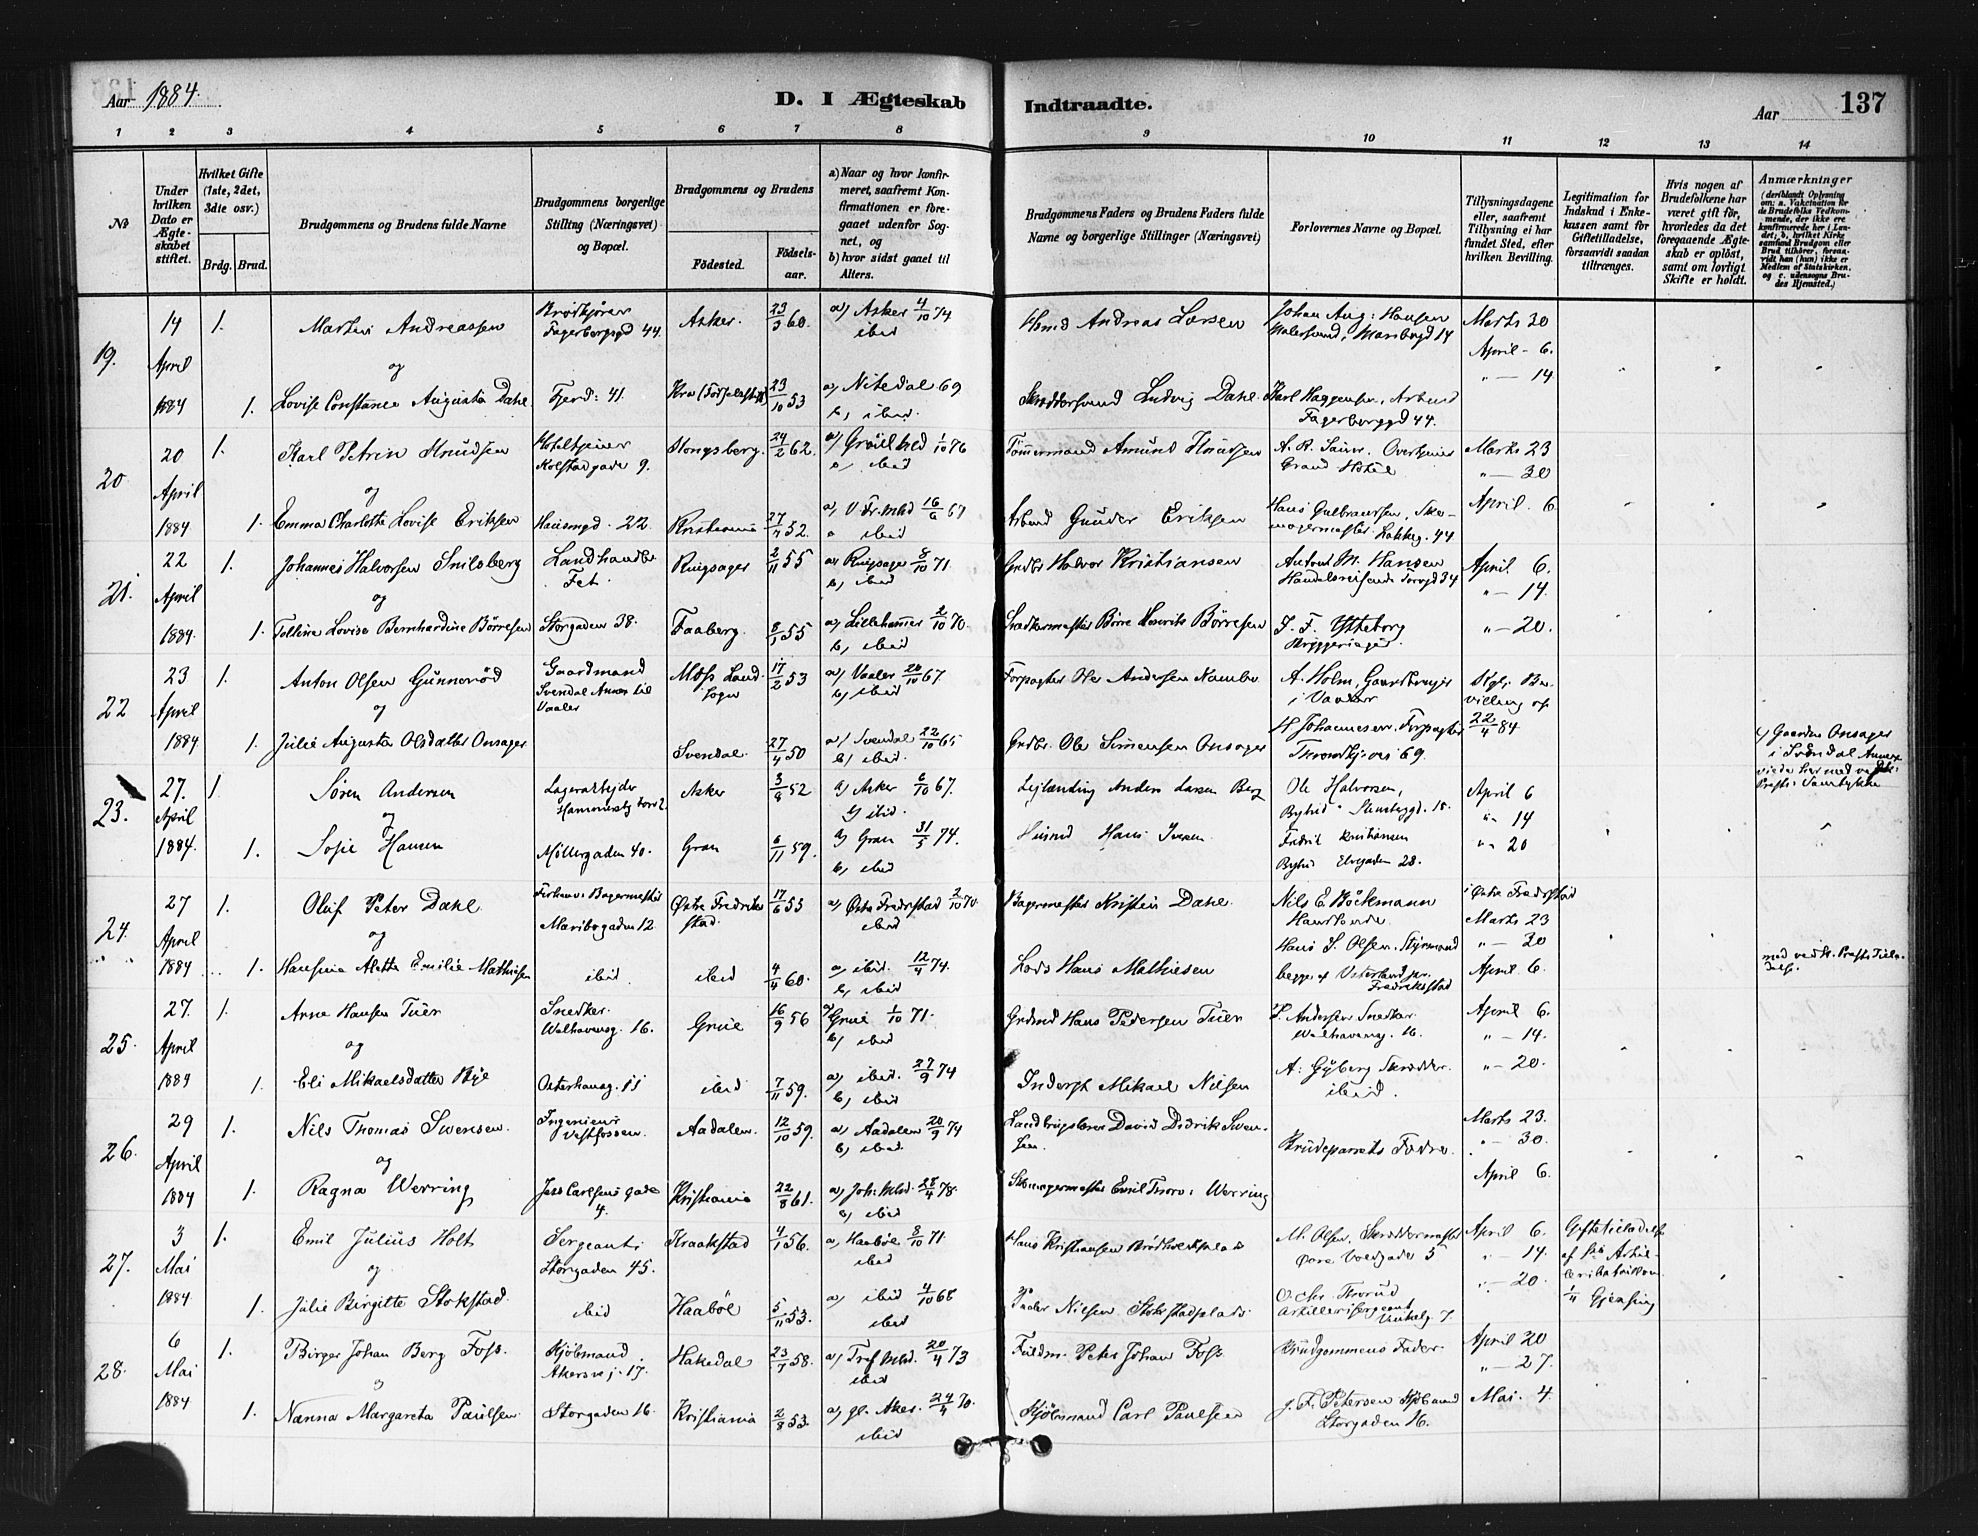 Aar 1884. D. I Ægteskab Indtraadte. Aar 137
1 2 3 4 5 6 7 8 9 10 11 12 13 14
№
Under hvilken Dato er Ægteskabet stiftet.
Hvilket Gifte (1ste, 2det, 3die osv.)
Brdg. Brud.
Brudgommens og Brudens fulde Navne
Brudgommens borgerlige Stilling (Næringsvei) og Bopæl.
Brudgommens og Brudens
Fødested. Fødselsaar.
a) Naar og hvor konfirmeret, saafremt Konfirmationen er foregaaet udenfor Sognet, og
b) hvor sidst gaaet til Alters.
Brudgommens Faders og Brudens Faders fulde Navne og borgerlige Stillinger (Næringsvei)
Forlovernes Navne og Bopæl.
Tillysningsdagene eller, saafremt Tillysning ei har fundet Sted, efter hvilken Bevilling.
Legitimation for Indskud i Enkekassen samt for Giftetilladelse, forsaavidt saadan tiltrænges.
Hvis nogen af Brudefolkene har været gift før, hvorledes da det foregaaende Ægteskab er opløst, samt om lovligt Skifte er holdt.
Anmærkninger
(deriblandt Oplysning om: a. Vakcination for de Brudefolks Vedkommende, der ikke ere konfirmerede her i Landet; b. hvilket Kirkesamfund Brudgom eller Brud tilhører, forsaavidt han (hun) ikke er Medlem af Statskirken, og c. udensogns Brudes Hjemsted.)
19. 14 April 1884
1. Martin Andreassen Fagerborggd 44. Asker. 23/3 60. a) Asker 4/10 74 ibid Andreas Larsen Johan Aug: Hansen Marts 30
og April - 6.
1. Lovise Constance Augusta Dahl Fjerd: 41. 23/10 53 a) Nitedal 69 b) ibid. Ludvig Dahl Karl Haggensen, Arbmd Fagerborggd 44. " — 14
20 20 April 1884
1. Karl Petrin Knudsen Kolstadgade 9. Kongsberg. 24/2 62. 1/10 76 b) ibid Tømmermand Amund Knudsen Grand Hotel Marts 23 " — 30
og
1. Emma Charlotte Lovise Eriksen Hausmgd. 22. Kristiania 52. 67 ibid Arbmd Gunder Eriksen April 6
21. 22 April 1884.
1. Johannes Halvorsen Smilsberg Landhandler Fet. Ringsager 2/11 55 a) Ringsager 8/10 71. b) ibid Grdbr Halvor Kristiansen Anton M. Hansen April 6. " — 14.
og
1. Lovise Bernhardine Børresen Storgaden 38. Faaberg. 8/1 55 a) Lillehamer 2/10 70. b) ibid Børre Børresen J. F. Ytteborg Bryggerieier " — 20.
22 23 April 1884
1. Anton Olsen Gunnerød Gaardmand Svendal Annex til Vaaler Moss Landsogn 17/2 53 a) Vaaler 67 b) ibid Forpagter Ole Andersen A. Holm, i Vaaler Kgl. Bevilling af 22/4 84
og
1. Julie Augusta Olsdatter Onsager Svendal 27/4 50 a) Svendal 22/10 65 b) ibid. Grdbr. Ole Simensen Onsager H Johannesen Forpagter 69. Gaarden Onsager i Svendal Annex
23. 27. April 1884.
1 Søren Andersen Lagerarbejder Asker 3/8 52 a) Asker 6/10 67. b) ibid. Anders Larsen Berg Ole Halvorsen, April 6 " 14
og
1. Sofie Hansen Møllergaden 40. Gran 6/11 59. a) Gran 31/5 74. b) ibid Hans Iversen Elvgaden 28. " 20
24. 27 April 1884
1. Oluf Peter Dahl Maribogaden 12. Østre Fredrikstad. 17/6 55 a) Østre Fredrstad 2/10 70. ibid Bagermester Kristen Dahl Nils E Bøckmann i Østre Fredrstad Marts 23
og Hans S. Olsen. Styrmand " — 30
1. Hansine Aletta Emilie Mathiesen ibid ibid 4/4 60. a) ibid. 12/4 74. b) ibid Lods Hans Mathiesen begge af Vaterland pr. Fredrikstad April 6.
25. 27. April 1884
1. Arne Hansen Tuer Snedker Welhavensg. 16. Grue 16/9 56 a) Grue 1/10 71. b) ibid Grdmd Hans Pedersen Tuer Andersen Snedker Welhavensg. 16. April 6. " — 14.
og
1. Eli Mikaelsdatter Bye Osterhausg. 11 ibid 7/11 59. a) ibid. 27/9 74 b) ibid Inderst Mikael Nilsen A. Gyberg Skrædder. ibid. " — 20.
26. 29 April 1884
1. Nils Thomas Svensen. Ingeniør Vestfossen. Aadalen 12/10 59. a) Aadalen 20/9 74 b) ibid. David Didrik Svensen. Brudeparrets Fædre. Marts 23. " - 30.
og
1. Ragna Werring Jess Carlsens gade 4. Kristiania 22/8 61. a) Joh. Mkd. 28/4 78. b) ibid Skomagermester Emil Thorv: Werring April 6.
27. 3 Mai 1884
1. Emil Julius Holt Sergeant Storgaden 45. Kraakstad 4/1 56. a) Haabøl 8/10 71. ibid Hans Kristiansen M. Olsen, Skræddermester Øvre Voldgade 5 April 6. " — 14. Giftetilladelse
og
1. Julie Birgitte Stokstad ibid Haabøl 5/11 53. a) ibid 4/10 68 ibid Peder Nilsen Stokstadplads Artillerisergeant " — 20.
28. 6 Mai 1884
1. Birger Johan Berg Foss. Kjøbmand Akersvej. 17. Hakedal 23/7 58. a) Tref. Mkd. 20/4 73 ibid Fuldm. Peter Johan Foss Brudgommens Fader. April 20 " — 27.
og
1. Nanna Margareta Paulsen Storgaden 16. Kristiania 2/8 53. a) gl. Aker. 24/4 70. ibid Kjøbmand Carl Paulsen J. F. Petersen Kjøbmand Storgaden 16. Mai. 4.